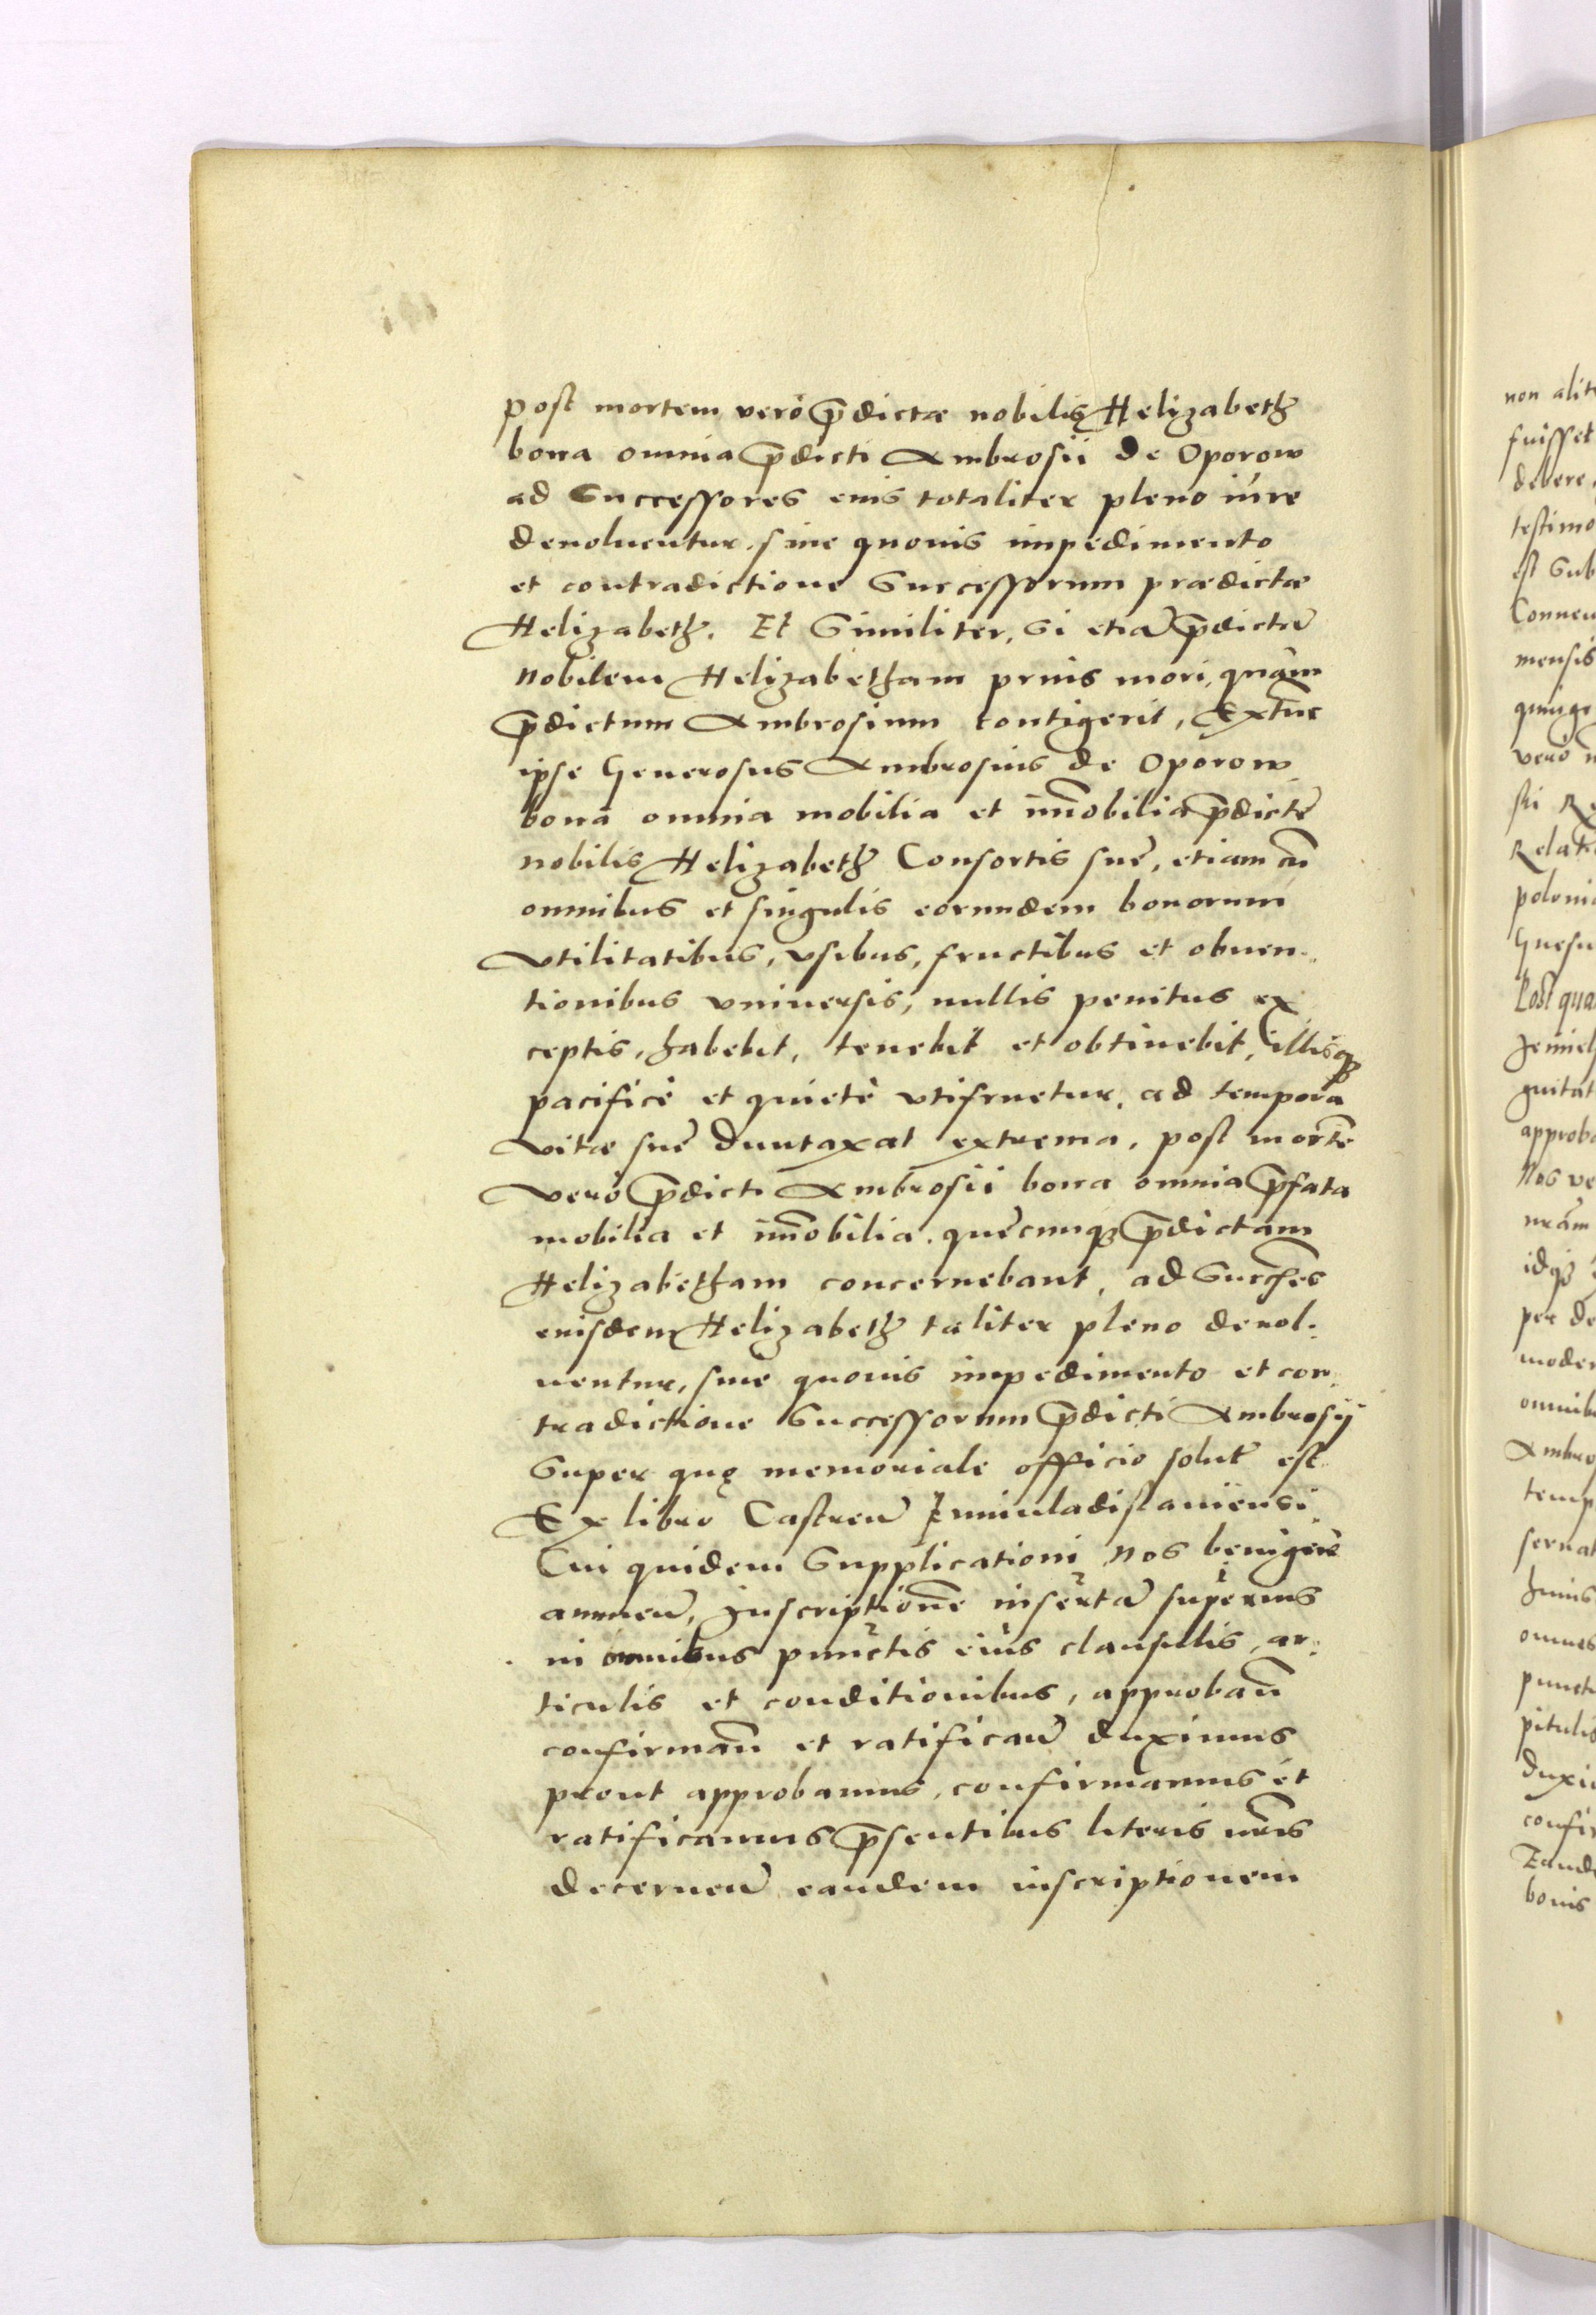 post mortem verò p̄dictæ nobilis Helizabeth
bona omnia p̄dicti Ambrosii de Oporow
ad Successores eius totaliter pleno iúre
deuoluentur, sine quouis impedimento
et contradictione Successorum prædictæ
Helizabeth. Et Similiter, Si etiā p̄dictā
nobilem Helizabetham prius mori, quàm
p̄dictum Ambrosium contigerit, Extūc
ipse Generosus Ambrosius de Oporow
bona omnia mobilia et im̄obilia p̄dictę
nobilis Helizabeth Consortis suę, etiam cū
omnibus et singulis eorundem bonorum
vtilitatibus, vsibus, fructibus et obuen-
tionibus vniuersis, nullis penitus ex
ceptis, habebit, tenebit et obtinebit, illisq3
pacificè et quietè vtifruetur, ad tempora
vitæ suę duntaxat extrema, post mortē
verò p̄dicti Ambrosii bona omnia p̄fata
mobilia et im̄obilia, quęcunq3 p̄dictam
Helizabetham concernebant, ad Succ̄es
eiusdem Helizabeth taliter pleno deuol-
uentur, sine quouis impedimento et con-
tradictione Successorum p̄dicti Ambrosij
Super quo memoriale officio solut̄ est
Ex libro Castreń Iuniuladislauiensi.
Cui quidem Supplicationi nos benignè
annueń, Inscriptionē insertā superius
in omnibus punctis eius clausulis, ar-
ticulis et conditionibus, approbań
confirmań et ratificań duximus
prout approbamus, confirmamus et
ratificamus p̄sentibus literis nr̄is
decerneń eandem inscriptionem
non alit
fuisset
debere
testimo
est Sub
Conuen
mensis
quinge
verò
ski
Relati
poloni
Gnesn
Post qua
guitat
approba
Nos ve
nrām
idq3
per de
moder
omnib
Ambro
temp
seruat
huius
omnes
punct
pitulis
duxi
confir
Eande
bonis